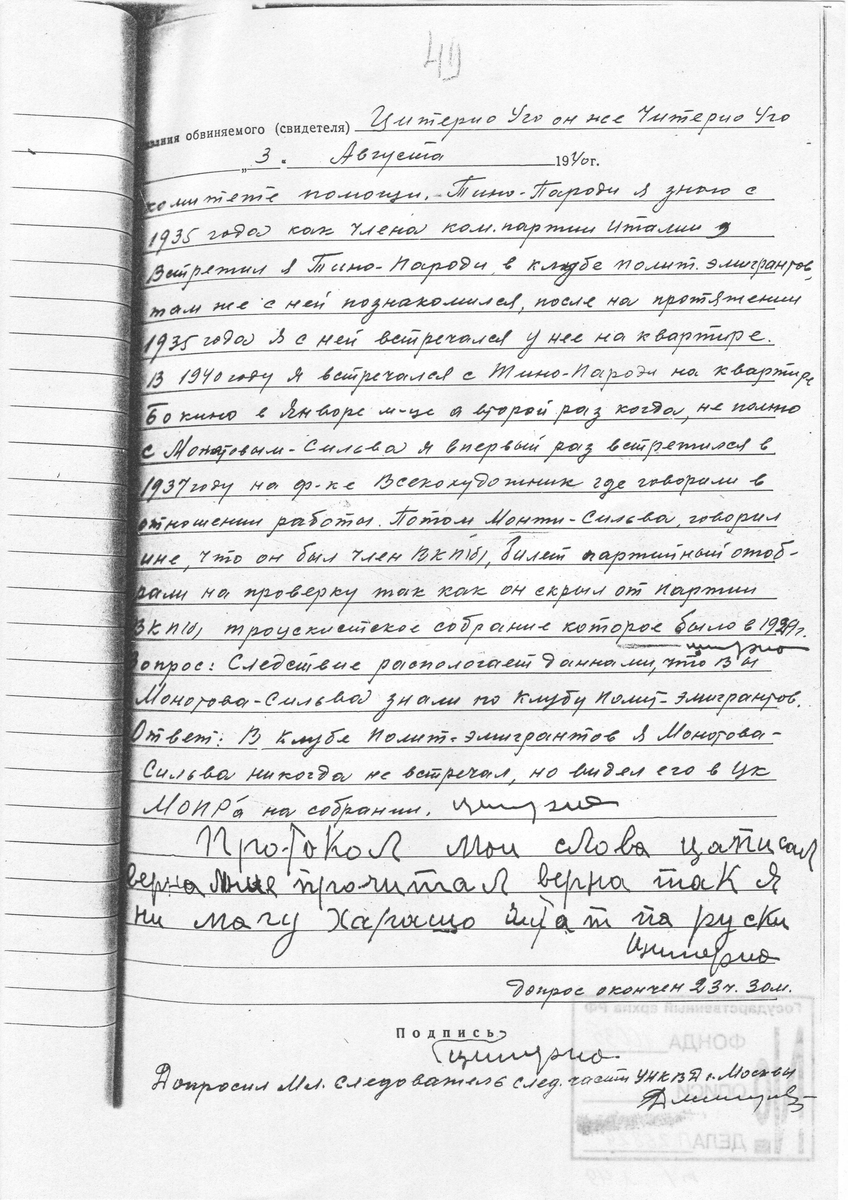 49
зания обвиняемого (свидетеля) Цитерио Уго он же Читерио Уго
„3" Августа 1940г.
комитете помощи. Тино-Пароди я знаю с
1935 года как члена ком.партии Италии,
Встретил я Тино-Пароди, в клубе полит.эмигрантов,
там же с ней познакомился, после на протяжении
1935 года я с ней встречался у нее на квартире.
В 1940 году я встречался с Тино-Пароди на квартире
Бокино в Январе м-це а второй раз когда, не помню
с Монотовым-Сильва я впервый раз встретился в
1937 году на ф-ке Всекохудожник где говорили в
отношении работы. Потом Монти-Сильва, говорил
мне, что он был член ВКП(б), билет партийный отоб-
рали на проверку так как он скрыл от партии
ВКП(б), троцкистское собрание которое было в 1929г.
Цитерио
Вопрос: Следствие распологает данными, что Вы
Монотова-Сильва знали по клубу полит-эмигрантов.
Ответ: В клубе полит-эмигрантов я Монотова-
Сильва никогда не встречал, но видел его в ЦК
МОПР'а на собрании. Цитерио
Протокол мои слова записал
верна мние прочитал верна так я
ни магу харашо читат па руски
Цитерио
Допрос окончен 23ч. 30м.
Подпись
Цитерио
Допросил Мл. следователь след. части УНКВД г. Москвы
Государственный архив РФ
ФОНДА
ОПИСИ
ДЕЛА
№